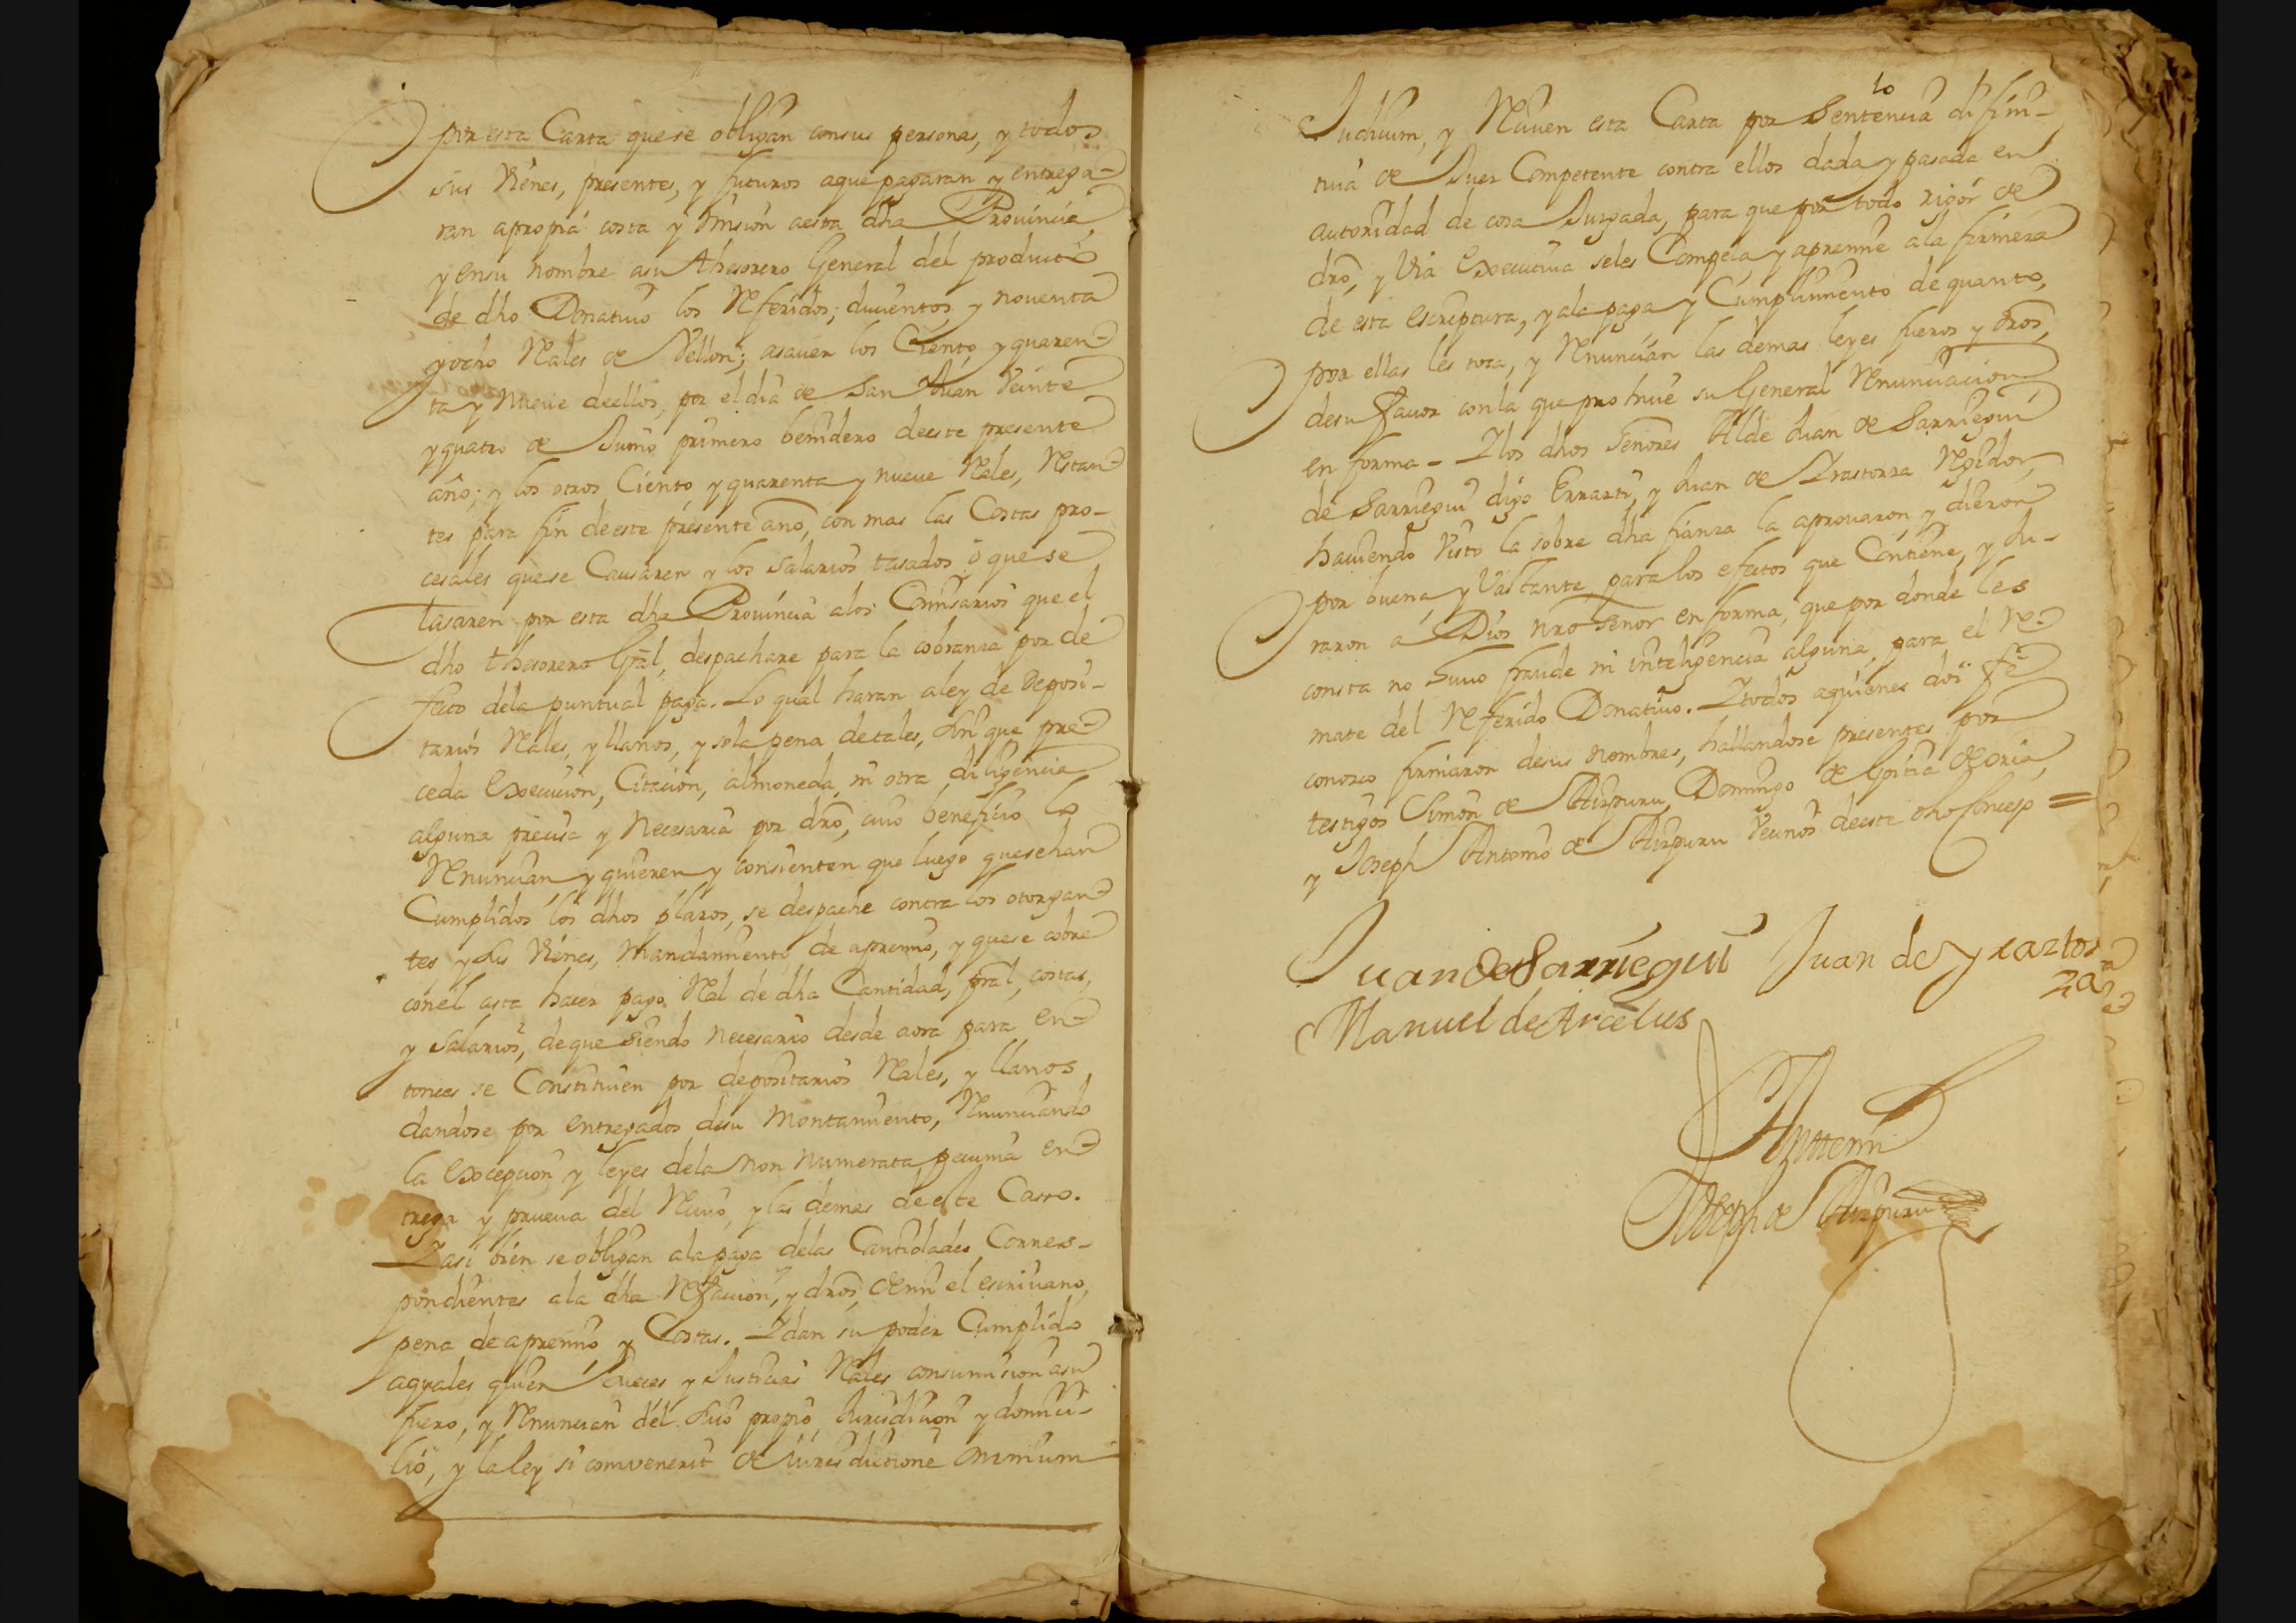 por esta Carta que se obligan con sus personas, y todos
sus Vienes, presentes, y futuros aque pagaran y entrega-
ran apropia costa y mision aesta dha Prouincia,
y ensu nombre asu thesorero General del producto
de dho Donatiuo los Referidos; ducientos y nouenta
y ocho Rales de Vellon; asauer los Ciento y quaren-
ta y nueue deellos, por el dia de San Juan Veinte
y quatro de Junio primero benidero deeste presente
año; y los otros Ciento y quarenta y nueue Rales, Restan-
tes para fin deeste presente año, con mas las Costas pro-
cesales quese Causaren y los salarios tasados ò que se
tasaren por esta dha Prouincia alos Comisarios que el
dho thesorero Gral, despachare para la cobranza por de
fecto dela puntual paga. Lo qual haran aley de Deposi-
tarios Rales, y llanos, y sola pena detales, sin que pre-
ceda Execucion, Citacion, almoneda, ni otra diligencia
alguna precisa y Necesaria por dro, cuio beneficio lo
Renuncian y quieren y consienten que luego quesehan
Cumplidos los dhos plazos, se despache contra los otorgan-
tes y sus Vienes, Mandamiento de apremio, y quese cobre
conel asta hacer pago Ral de dha Cantidad, pral, costas,
y Salarios, deque siendo necesario desde aora para en-
tonces se Constituien por depositarios Rales, y llanos
dandose por entregados desu Montamiento, Renunciando
la Excepcion y leyes dela non numerata pecunia en-
trega y prueua del Reciuo, y las demas deeste Casso.
Y asi bien se obligan ala paga delas Cantidades Corres-
pondientes ala dha Refaccion, y dros, de mi el escriuano,
pena de apremio y Costas. Y dan su poder Cumplido
aquales quier Jueces y Justicias Rales consumision asu
fuero, y Renuncian del suio propio, Jurisdicion y domici-
lio, y la ley si combenerit de iurisdictione omnium
Judicum, y Reciuen esta Carta por Sentencia difini-
tiua de Juez Competente contra ellos dada y pasada en
autoridad de cosa Juzgada, para que por todo rigor de
dro, y Via Executiua seles Compela y apremie ala firmeza
de esta escriptura, y ala paga y Cumplimiento de quanto,
por ellas les toca, y Renuncian las demas leyes fueros y dros,
desu fauor conla que prohiue su General Renunciacion
en forma - Y los dhos Señores Alde Juan de Sarriegui
de Sarriegui digo Errarte, y Juan de Yrastorza Regidor,
hauiendo Visto la sobre dha fianza la aprouaron y dieron
por buena y Vastante para los efectos que Contiene, y Ju-
raron a Dios nro Señor en forma, que por donde les
consta no huuo fraude ni inteligencia alguna, para el Re-
mate del Referido Donatiuo. Y todos aquienes doi fè
conozco firmaron desus nombres, hallandose presentes por
testigos Simon de Aizpuru, Domingo de Goitia de oria,
y Joseph Antonio de Aizpuru Vecinos deeste dho Concejo =
Juan de Sarriegui Juan de yraztor
za
Manuel de Arcelus
Ante mi
Joseph de Aizpuru